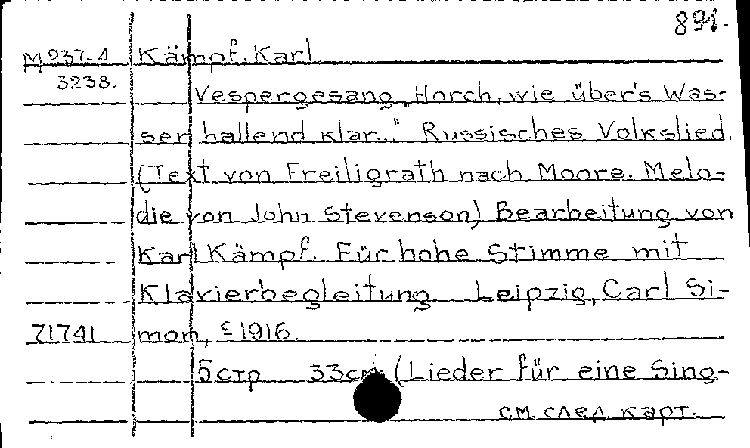 891.
M 237-4 Kämpf, Karl
3238.
Vespergesang „Horch, wie über's Was-
ser hallend klar..." Russisches Volkslied.
(Text von Freiligrath nach Moore. Melo-
die von John Stevenson) Bearbeitung von
Karl Kämpf. Für hohe Stimme mit
Klavierbegleitung. Leipzig, Carl Si-
71741 mon, c 1916.
5 стр 33 см (Lieder für eine Sing-
см. след. карт.